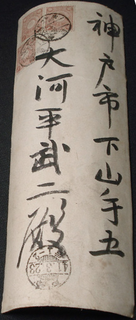 神戸市下山手五
大河平武二殿